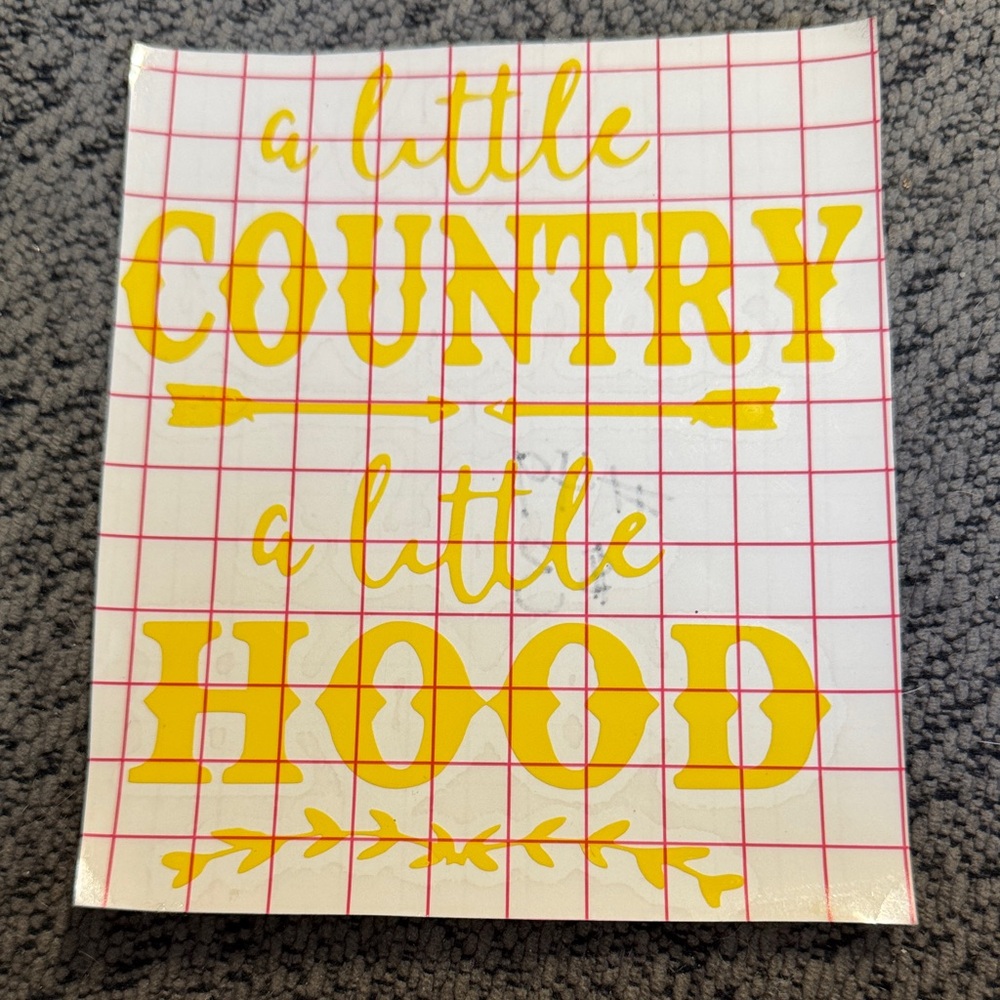 a little
COUNTRY
a little
HOOD